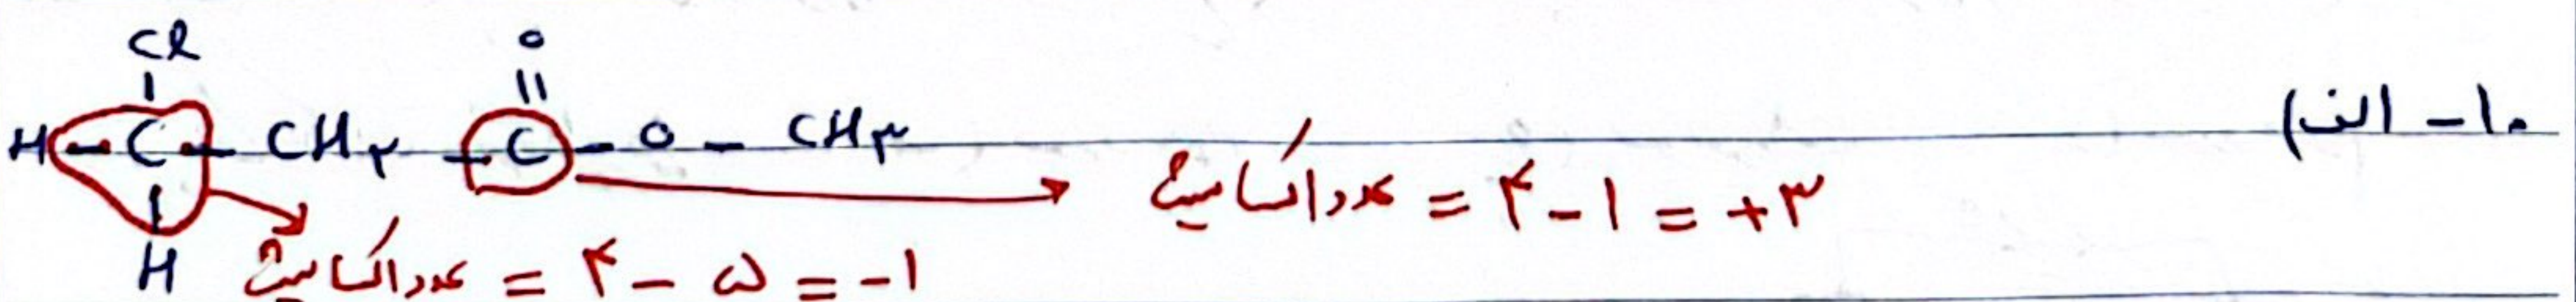 ۱۰- الف)
Cl O
H-C-CH۲-C-O-CH۳
H
عدد اکسایش = ۴-۱ = +۳
عدد اکسایش = ۴-۵ = -۱